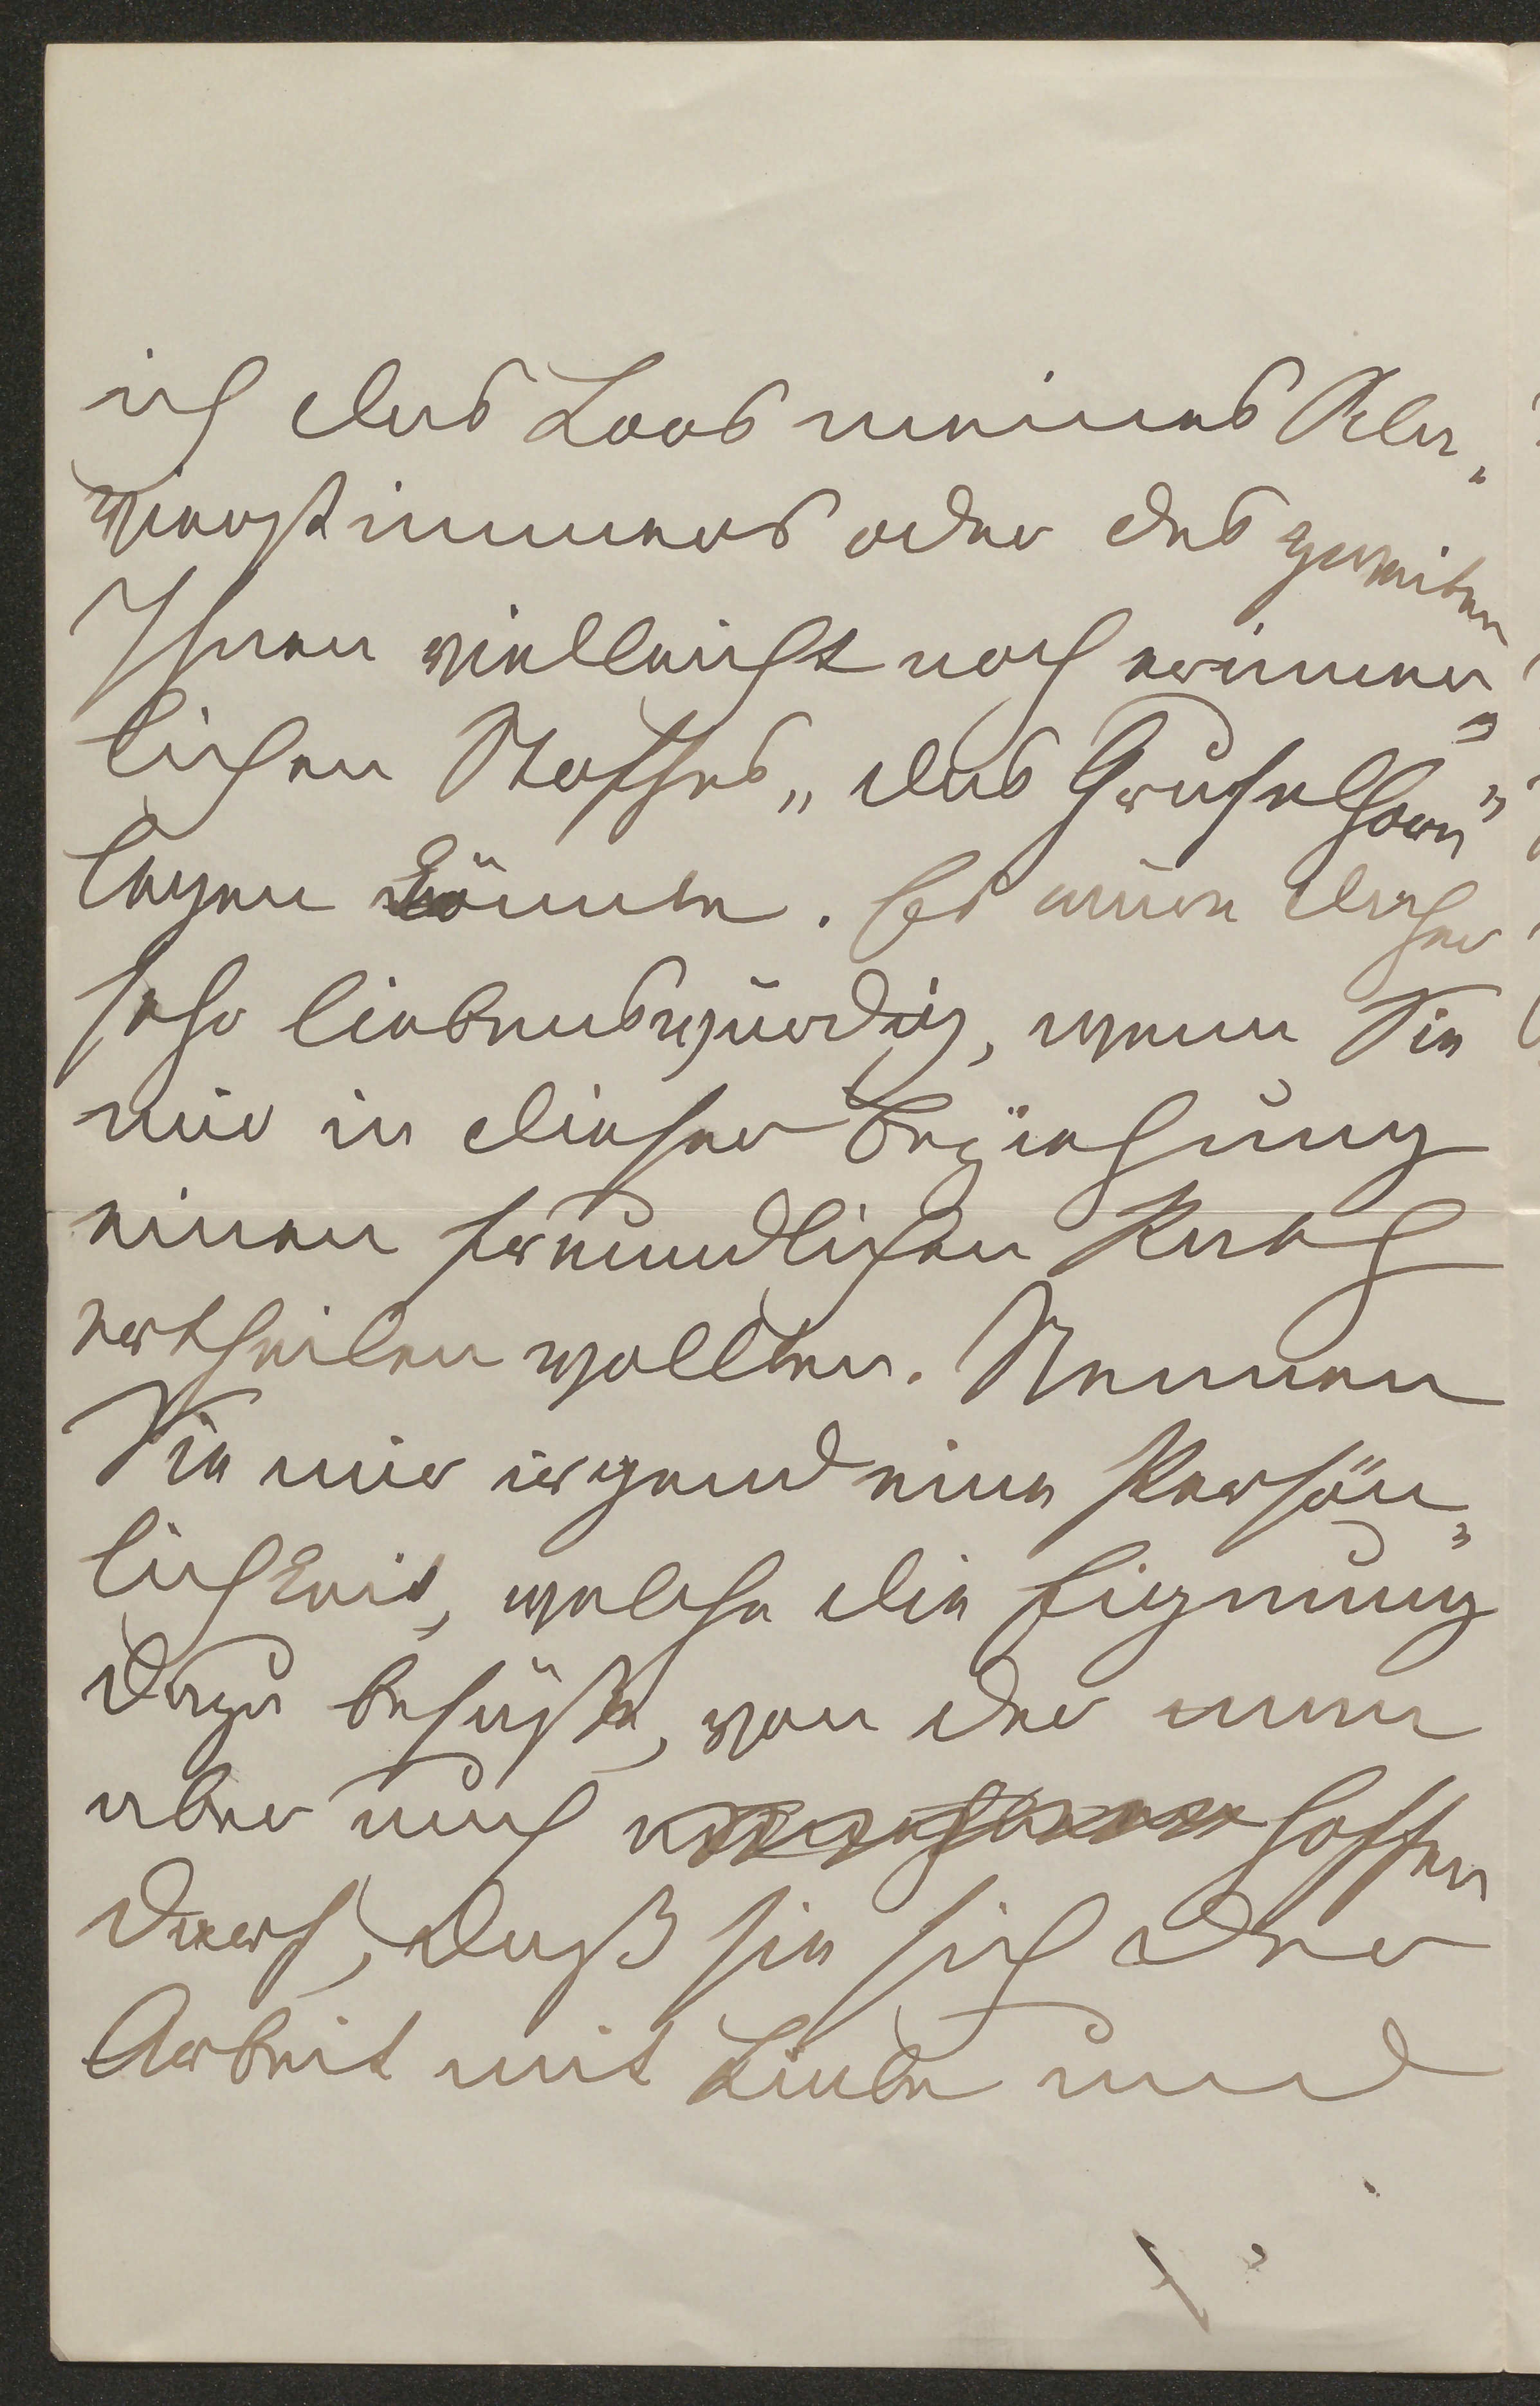 ich das Loos meines Kla„
vierstimmers oder des zweiten
Ihnen vielleicht noch erinner„
lichen Stoffes „das Gruselhorn“
legen könnte. Es wäre daher
sehr liebenswürdig, wenn Sie
mir in dieser Beziehung
einen freundlichen Rath
ertheilen wollten. Nennen
Sie mir irgend eine Persön„
lichkeit, welche die Eignung
dazu besäße, von der man
aber auch hoffen
darf, daß sie sich der
Arbeit mit Liebe und